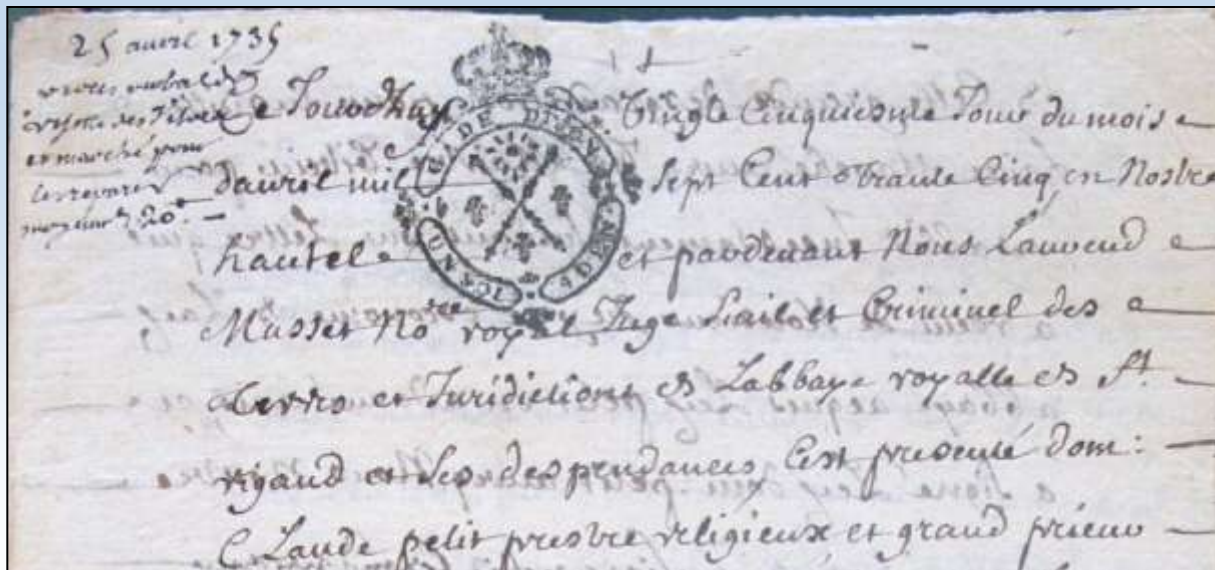 25 avril 1735
verbal de
visitte des
et marché pour
les reparer
moyennt 20# -
Ce Jourdhuy Vingt Cinquiesme Jour du mois
davril mil sept Cent Trante Cinq en Nostre
hautel et pardevant Nous Laurend
Musset No.re royal Juge Siail et Criminel des
Terres et Juridictions de Labbaye royalle de St.
rigaud et ses despendances Cest presenté dom:
Claude petit prestre religieux et grand prieur